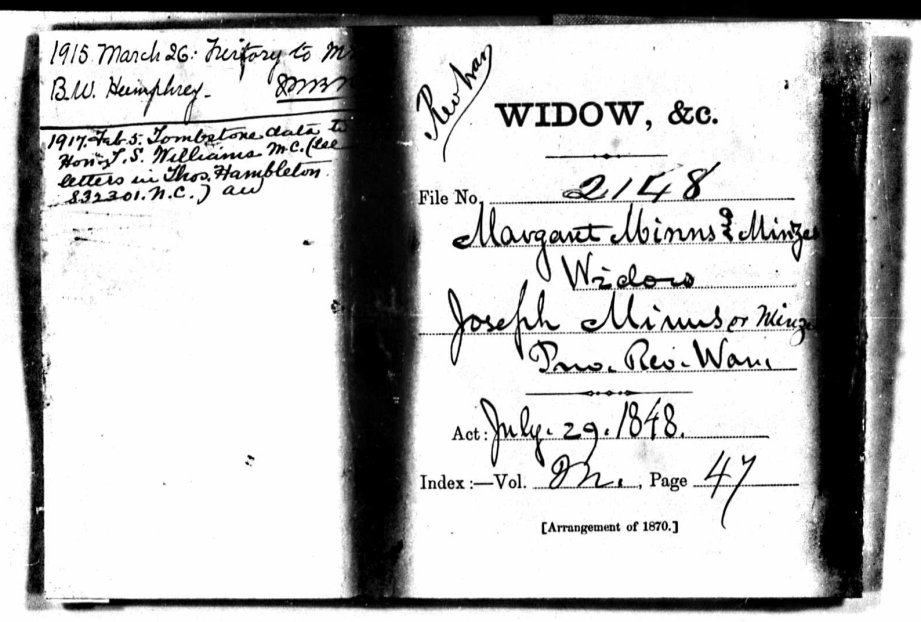 1915 March 26: History to M
B.W. Humphrey.
1917-Feb 5: Tombstone data to
Hon. T. S. Williams M.C. (see
letters in Thos. Hambleton
S32301. N.C.) aw
Rev War
WIDOW, &c.
File No. 2148
Margaret Minns or Minzes
Widow
Joseph Minns or Minze
Pvt. Rev. War.
Act: July. 29. 1848.
Index:—Vol. M., Page 47
[Arrangement of 1870.]